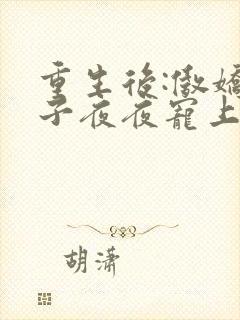 重生後:傲嬌
子夜夜寵上
胡瀟